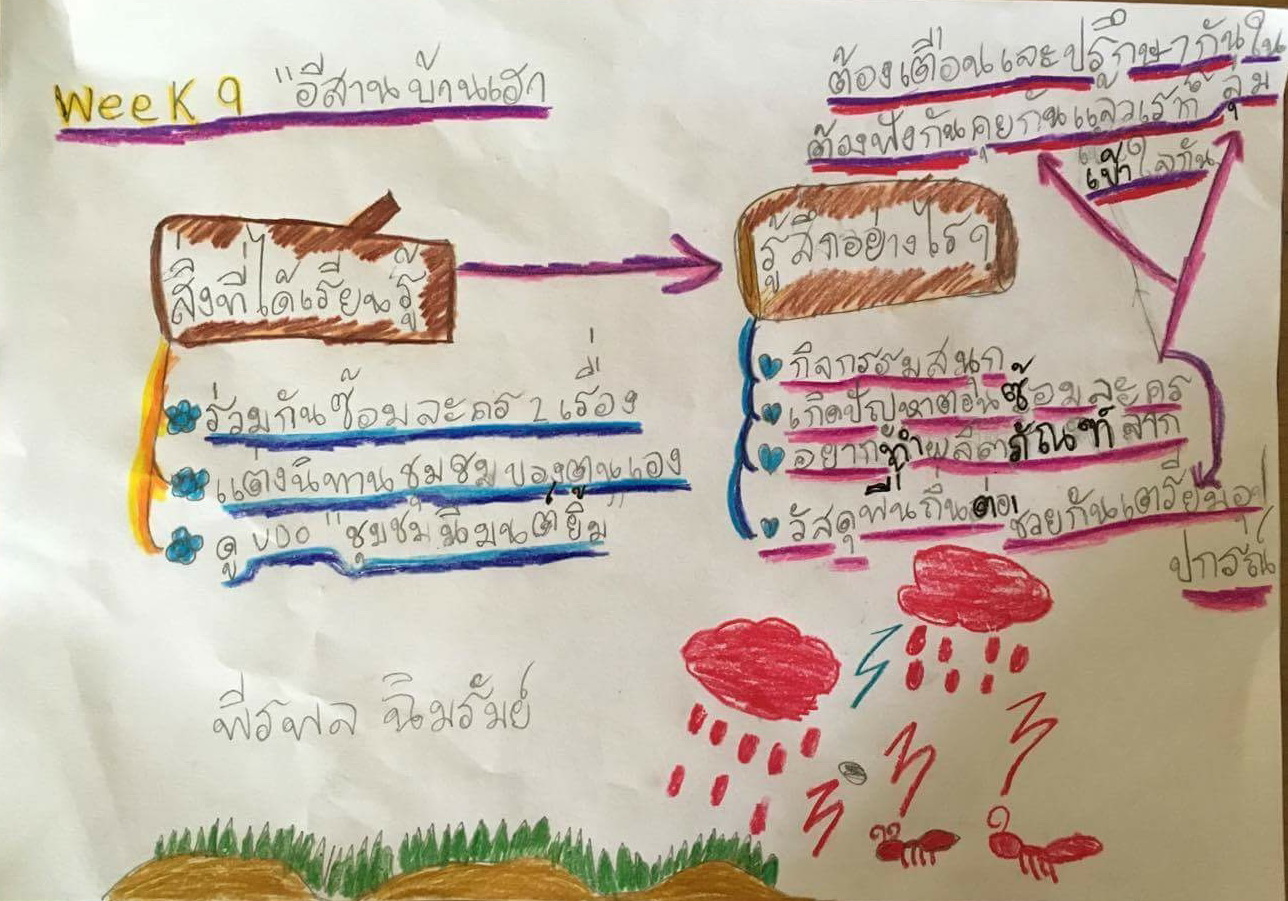 Week 9 "อีสานบ้านเฮา
ต้องเตือนและปรึกษากันใน
ต้องฟังกันคุยกันแล้วเราก็
กลุ่ม
เข้าใจกัน
สิ่งที่ได้เรียนรู้
รู้สึกอย่างไร?
ร่วมกันซ้อมละคร 2 เรื่อง
แต่งนิทานชุมชมของตนเอง
ดู VDO "ชุมชมนี้มนต์ยิ้ม"
กิจกรรมสนุก
เกิดปัญหาตอนซ้อมละคร
อยากทำผลิตภัณฑ์จาก
วัสดุพื้นถิ่นต่อ
ช่วยกันเตรียมอุ
ปกรณ์
พีรพล ฉิมรัมย์